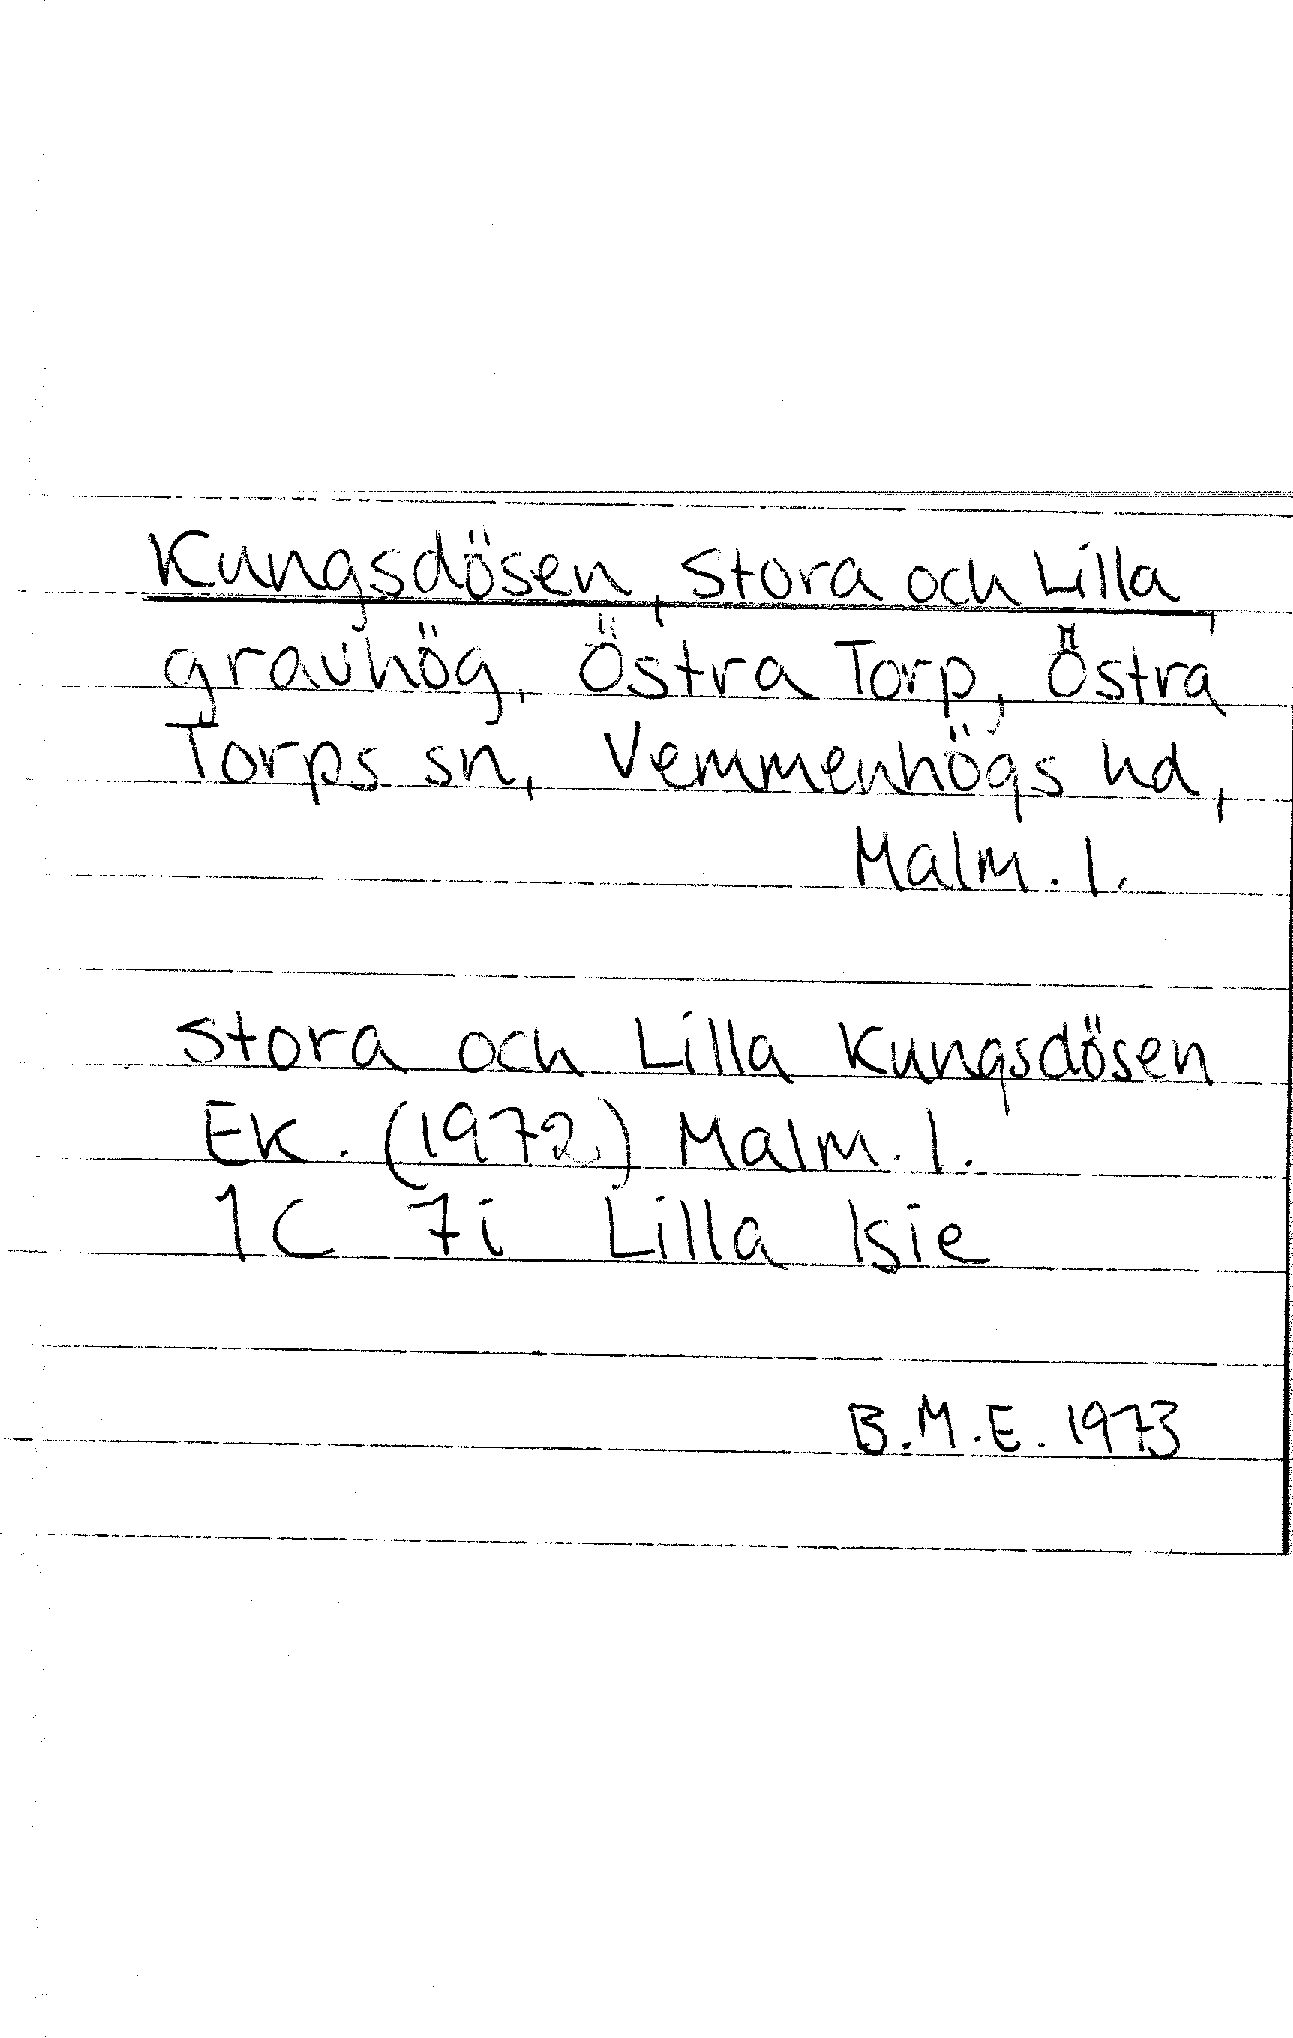 Kungsdösen, Stora och Lilla,
gravhög, Östra Torp, Östra
Torps sn, Vemmenhögs hd,
Malm. l.
Stora och Lilla Kungsdösen
Ek. (1972) Malm. l.
1C 7i Lilla Isie
B.M.E. 1973